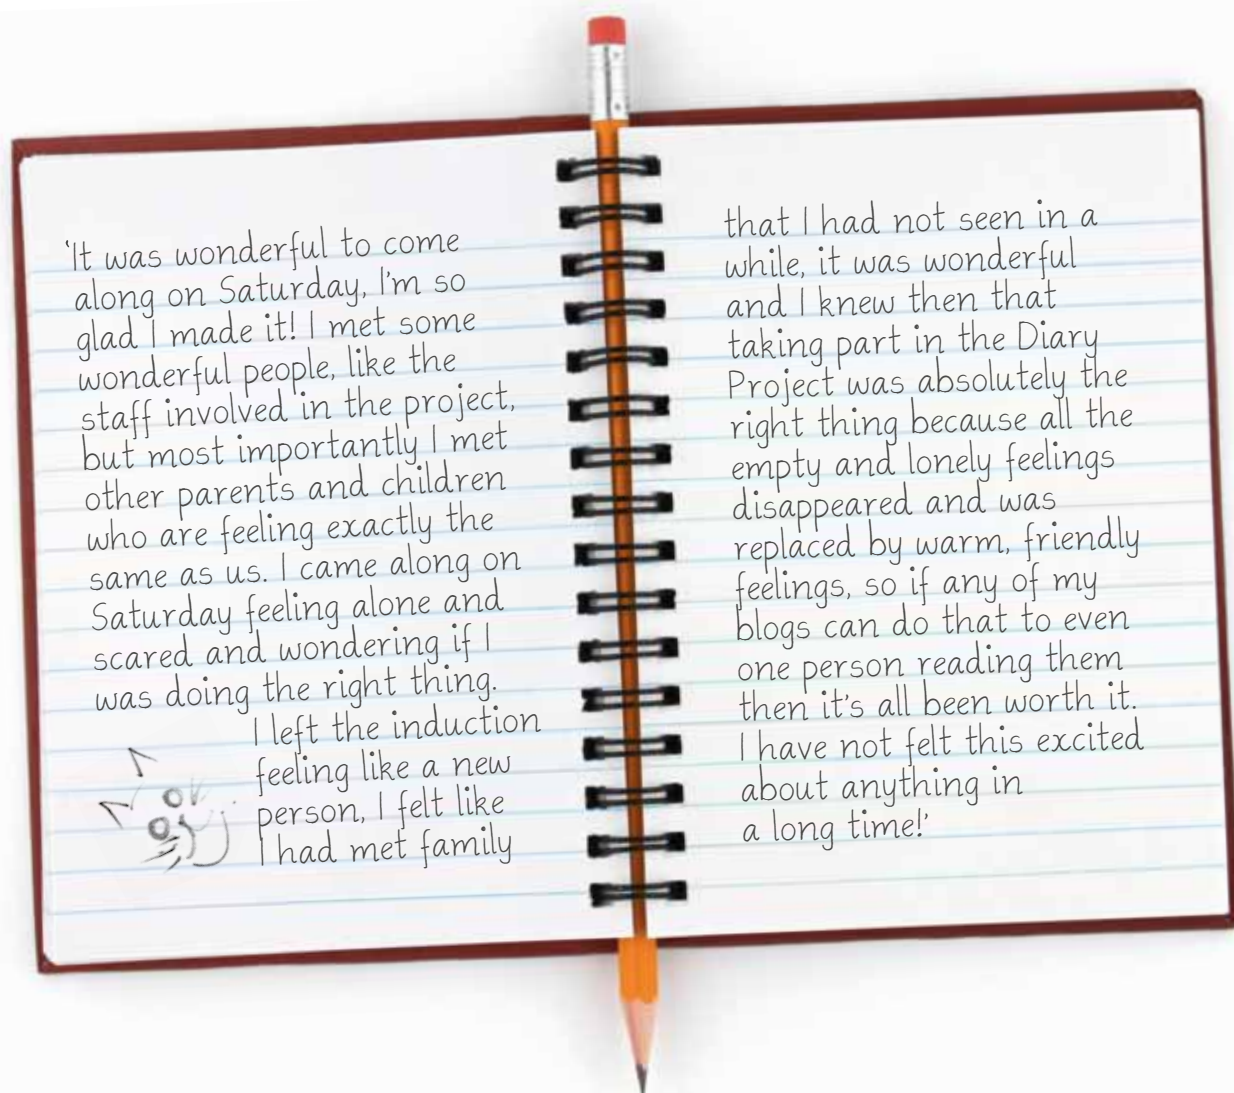 'It was wonderful to come
along on Saturday, I'm so
glad I made it! I met some
wonderful people, like the
staff involved in the project,
but most importantly I met
other parents and children
who are feeling exactly the
same as us. I came along on
Saturday feeling alone and
scared and wondering if I
was doing the right thing.
I left the induction
feeling like a new
person, I felt like
I had met family
that I had not seen in a
while, it was wonderful
and I knew then that
taking part in the Diary
Project was absolutely the
right thing because all the
empty and lonely feelings
disappeared and was
replaced by warm, friendly
feelings, so if any of my
blogs can do that to even
one person reading them
then it's all been worth it.
I have not felt this excited
about anything in
a long time!'